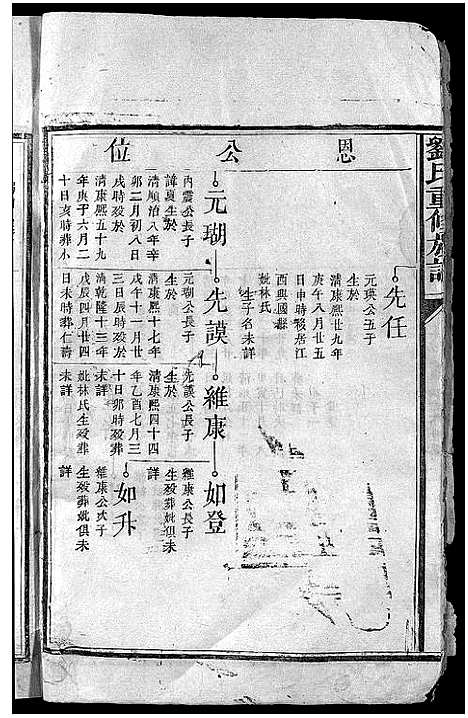 劉氏重修族譜
恩公位
先任
元珙公五子
生於
清康熙廿九年
庚午八月廿五
日申時移居江
西興國縣
妣林氏
生子名未詳
元瑚
內震公長子
諱夏生於
清順治八年辛
卯二月初八日
戌時歿於
清康熙五十九
年庚子六月二
十日亥時葬小
先謨
元瑚公長子
生於
清康熙十七年
戊午十一月廿
三日辰時歿於
清乾隆十三年
戊辰四月廿四
日未時葬仁壽
維康
先謨公長子
生於
清康熙四十四
年乙酉七月三
十日卯時歿葬
妣林氏生歿葬
未詳
如登
維康公長子
生歿葬妣俱未
詳
如升
維康公次子
生歿葬妣俱未
詳